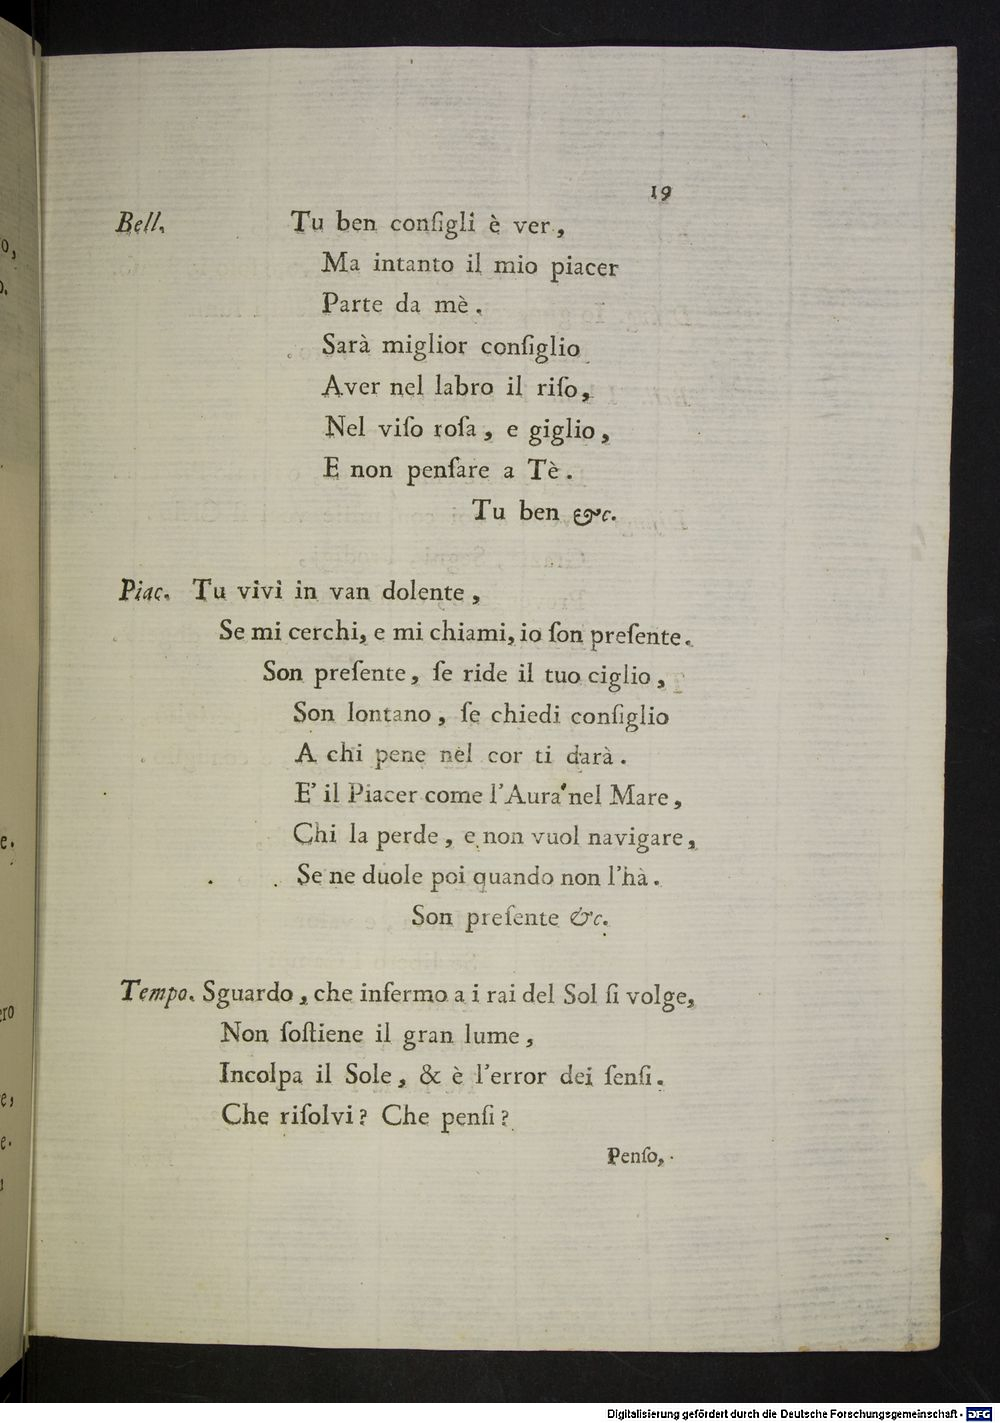 19
Bell. Tu ben conſigli è ver,
Ma intanto il mio piacer
Parte da mè.
Sarà miglior conſiglio
Aver nel labro il riſo,
Nel viſo roſa, e giglio,
E non penſare a Tè.
Tu ben &c.
Piac. Tu vivi in van dolente,
Se mi cerchi, e mi chiami, io ſon preſente.
Son preſente, ſe ride il tuo ciglio,
Son lontano, ſe chiedi conſiglio
A chi pene nel cor ti darà.
E' il Piacer come l'Aura nel Mare,
Chi la perde, e non vuol navigare,
Se ne duole poi quando non l'hà.
Son preſente &c.
Tempo. Sguardo, che infermo a i rai del Sol ſi volge,
Non ſoſtiene il gran lume,
Incolpa il Sole, & è l'error dei ſenſi.
Che riſolvi? Che penſi?
Penſo,
Digitalisierung gefördert durch die Deutsche Forschungsgemeinschaft - DFG